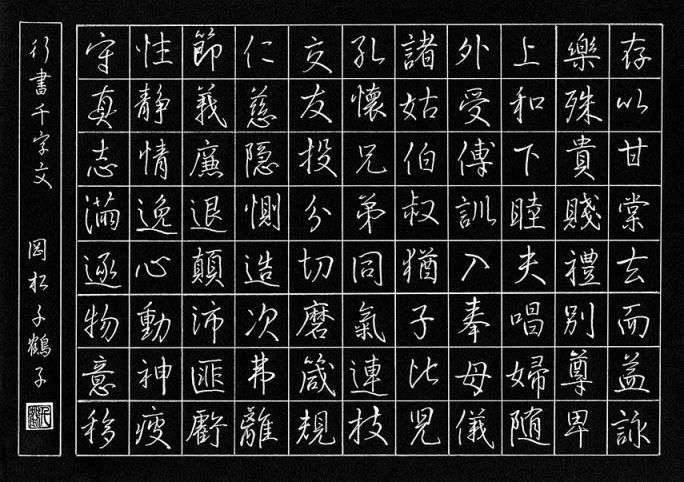 存以甘棠去而益詠
樂殊貴賤禮別尊卑
上和下睦夫唱婦随
外受傅訓入奉母儀
諸姑伯叔猶子比児
孔懐兄弟同氣連枝
交友投分切磨箴規
仁慈隠惻造次弗離
節義廉退顛沛匪虧
性静情逸心動神疲
守真志滿逐物意移
行書千字文 岡松千鶴子